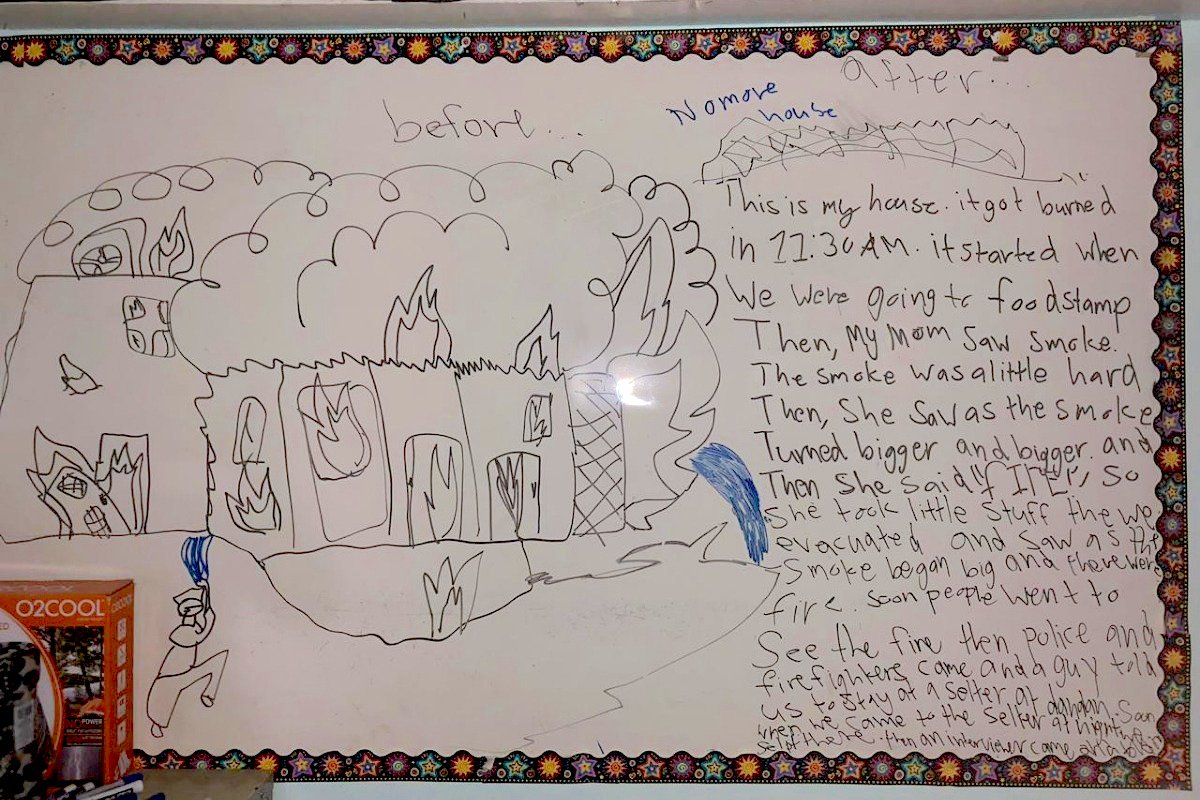 before...
after...
No more
house
This is my house. it got burned
in 11:30 AM. it started when
We were going to foodstamp
Then, My Mom saw smoke.
The smoke was a little hard
Then, She saw as the smoke
Turned bigger and bigger. and
Then she said FIRE, so
she took little stuff the we
evacuated and saw as the
smoke began big and there were
fire. soon people went to
See the fire then police and
firefighters came and a guy told
us to stay at a selter at dandan. Soon
when we came to the selter at night we
then an interviewer came
O2COOL
POWER